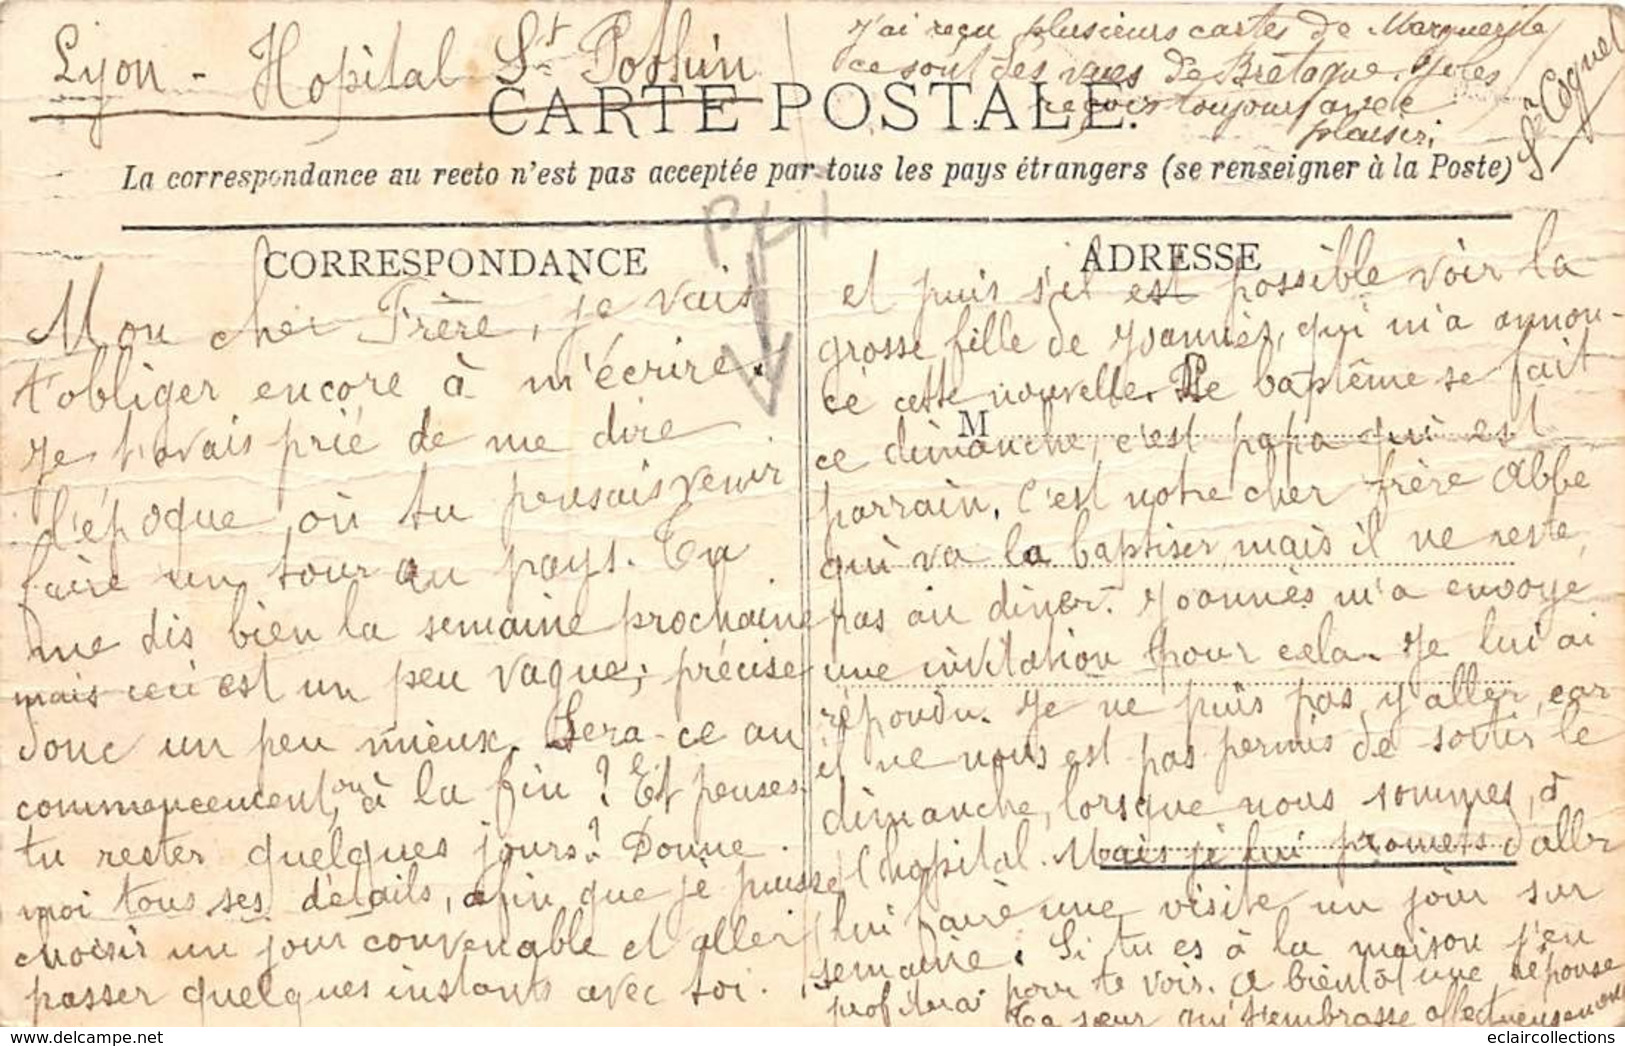 Lyon - Hopital St Pothin
J'ai reçu plusieurs cartes de Marguerite
ce sont des vues de Bretagne. Je les
reçois toujours avec
plaisir.
Sr Coquet
CARTE POSTALE.
La correspondance au recto n'est pas acceptée par tous les pays étrangers (se renseigner à la Poste)
CORRESPONDANCE
Mon cher Frère, je vais
t'obliger encore à m'écrire.
Je t'avais prié de me dire
l'époque où tu pensais venir
faire un tour au pays. Tu
me dis bien la semaine prochaine
mais ceci est un peu vague; précise
donc un peu mieux. Sera-ce au
commencement, ou à la fin? Et penses
tu rester quelques jours? Donne
moi tous ses détails, afin que je puisse
choisir un jour convenable et aller
passer quelques instants avec toi.
ADRESSE
M
et puis s'il est possible voir la
grosse fille de Joannès, qui m'a annon-
cé cette nouvelle. Le baptême se fait
ce dimanche, c'est papa qui est
parrain. C'est notre cher frère Abbé
qui va la baptiser mais il ne reste
pas au diner. Joannès m'a envoyé
une invitation pour cela. Je lui ai
répondu. Je ne puis pas y aller, car
il ne nous est pas permis de sortir le
dimanche, lorsque nous sommes à
l'hopital. Mais je lui promets d'aller
lui faire une visite un jour sur
semaine. Si tu es à la maison j'en
profiterai pour te voir. A bientôt une réponse
Ta sœur qui t'embrasse affectueusement
www.delcampe.net
eclaircollections